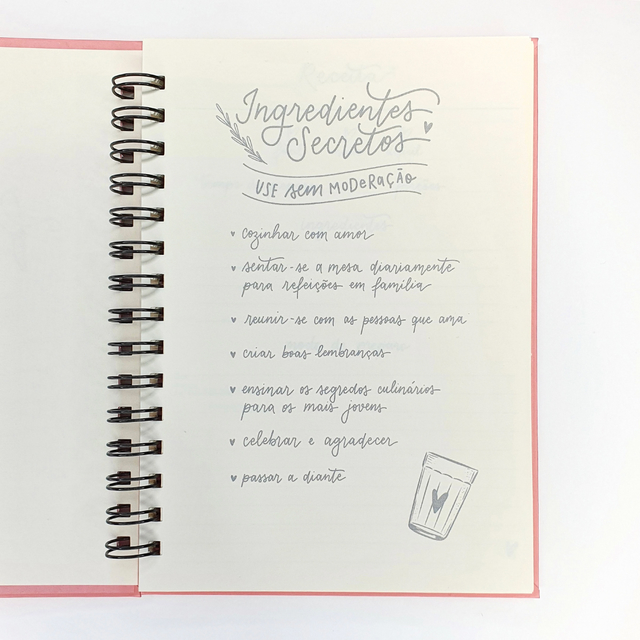 Ingredientes
Secretos
USE sem MODERAÇÃO
cozinhar com amor
sentar-se a mesa diariamente
para refeições em família
reunir-se com as pessoas que ama
criar boas lembranças
ensinar os segredos culinários
para os mais jovens
celebrar e agradecer
passar a diante